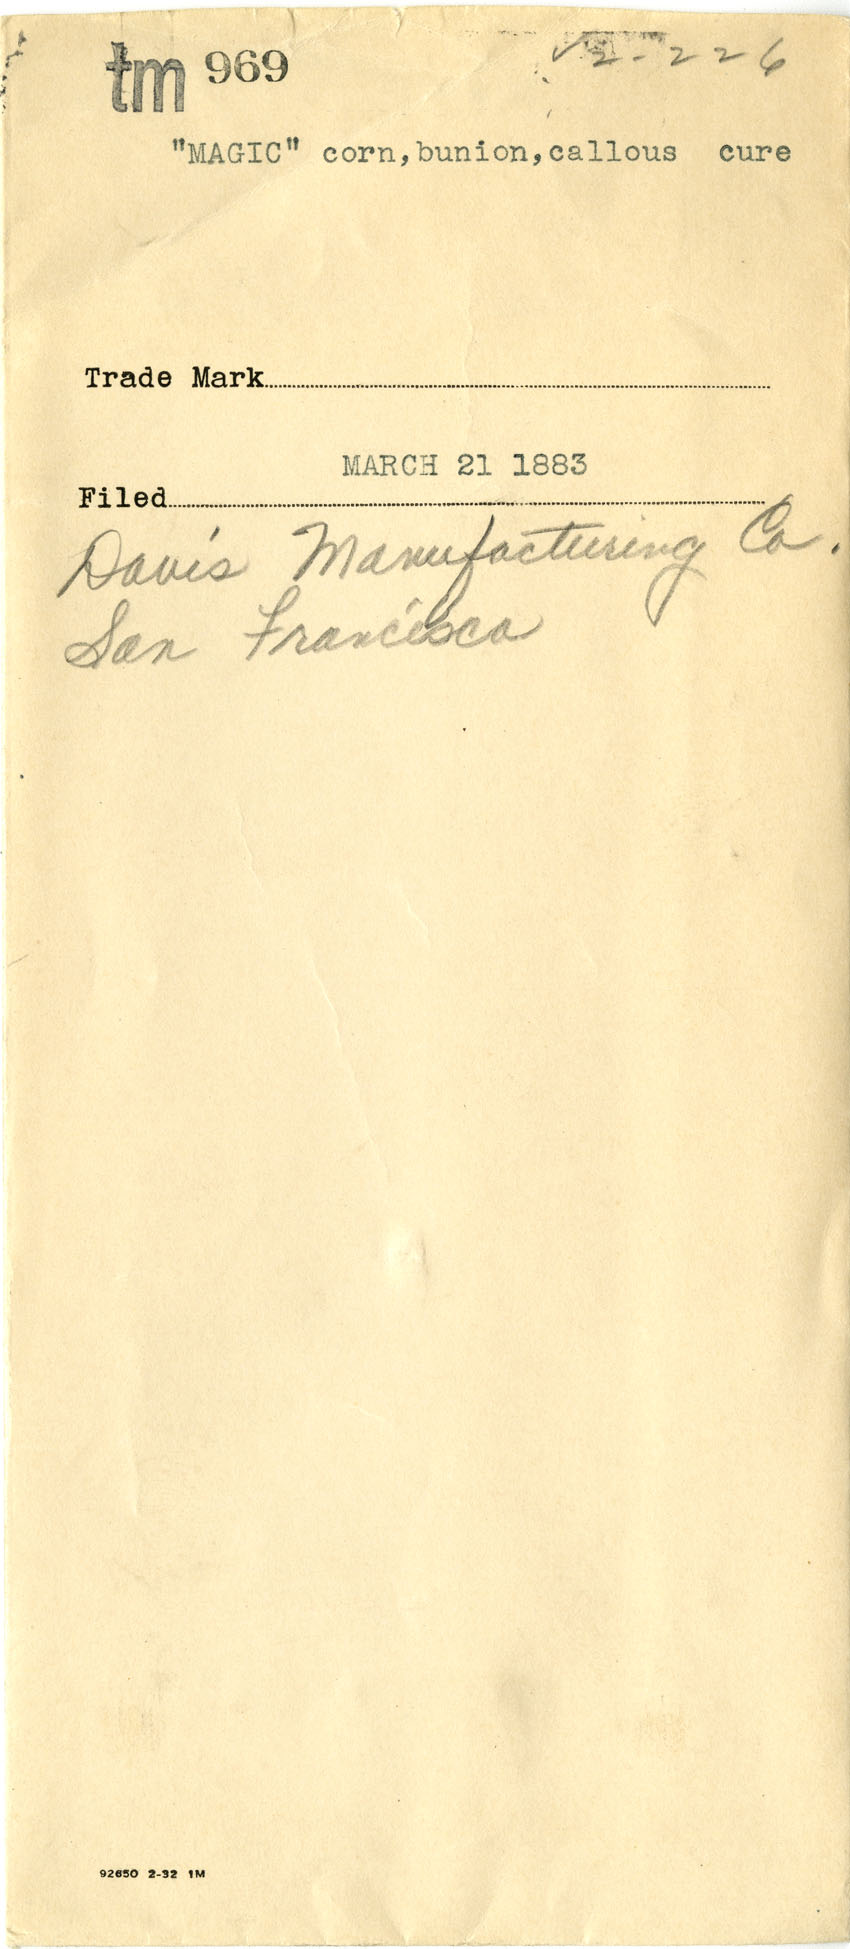 tm 969 ✓2-226
"MAGIC" corn,bunion,callous cure
Trade Mark
MARCH 21 1883
Filed
Davis Manufacturing Co.
San Francisco
92650 2-32 1M